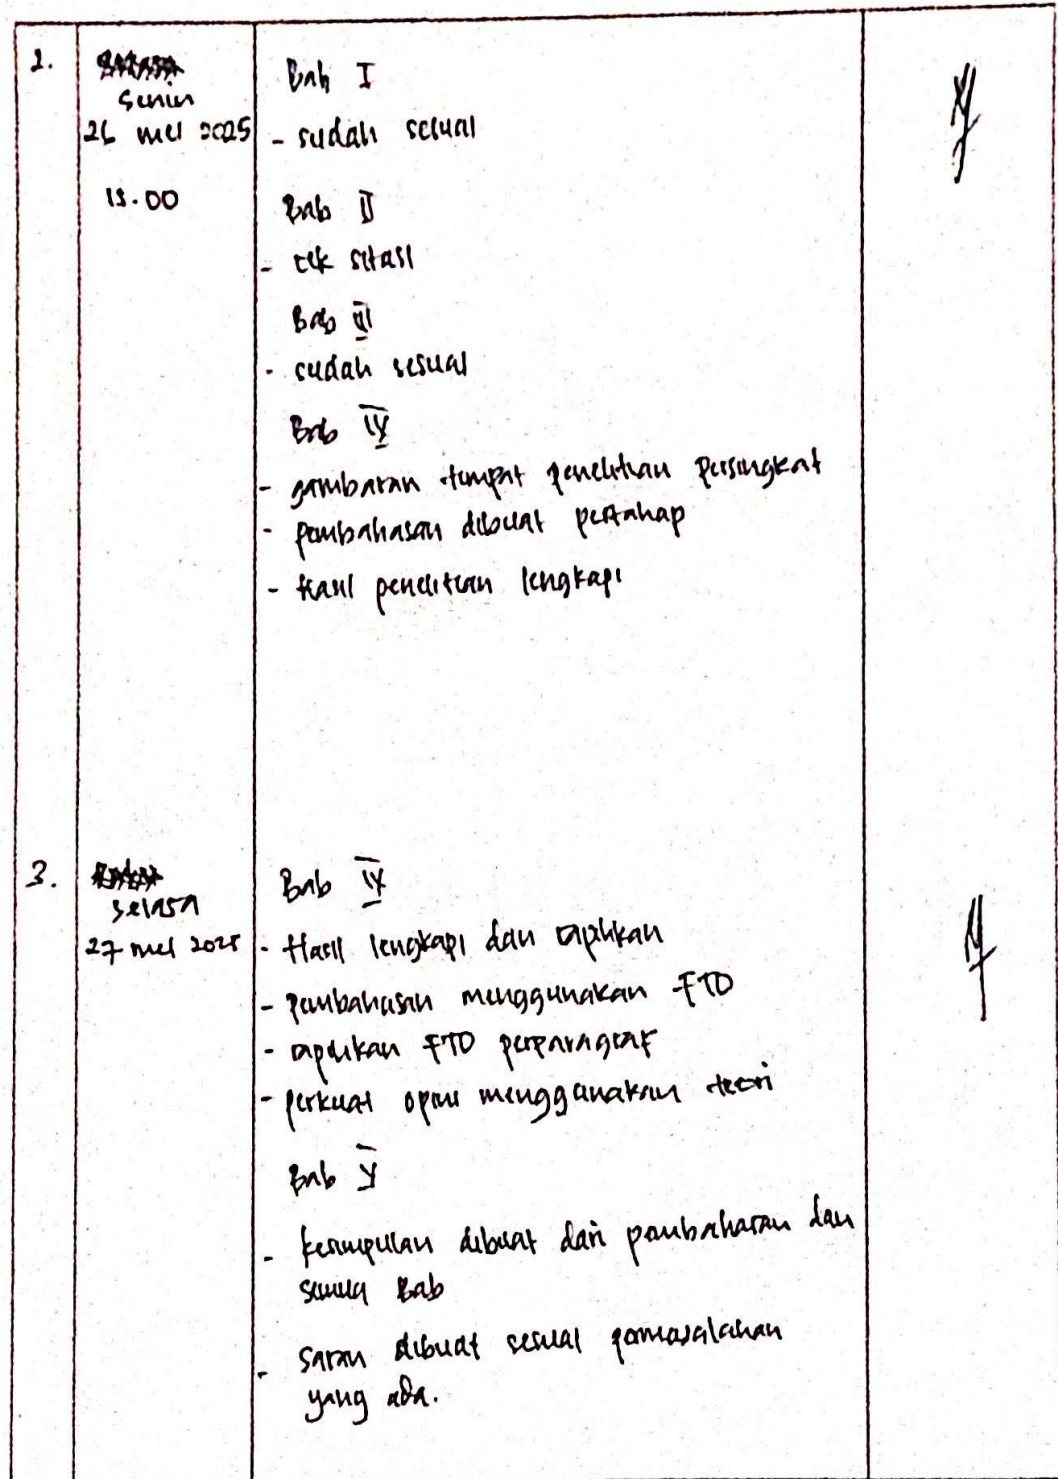 2.
Senin
26 mei 2025
Bab I
- sudah sesuai
13.00
Bab II
- cek sitasi
Bab III
- sudah sesuai
Bab IV
- gambaran tempat penelitian persingkat
- pembahasan dibuat pertahap
- Hasil penelitian lengkapi
3.
Selasa
27 mei 2025
Bab IV
- Hasil lengkapi dan rapihkan
- pembahasan menggunakan FTO
- rapihkan FTO perparagraf
- perkuat opini menggunakan teori
Bab V
- kesimpulan dibuat dari pembahasan dan
semua Bab
- saran dibuat sesuai permasalahan
yang ada.